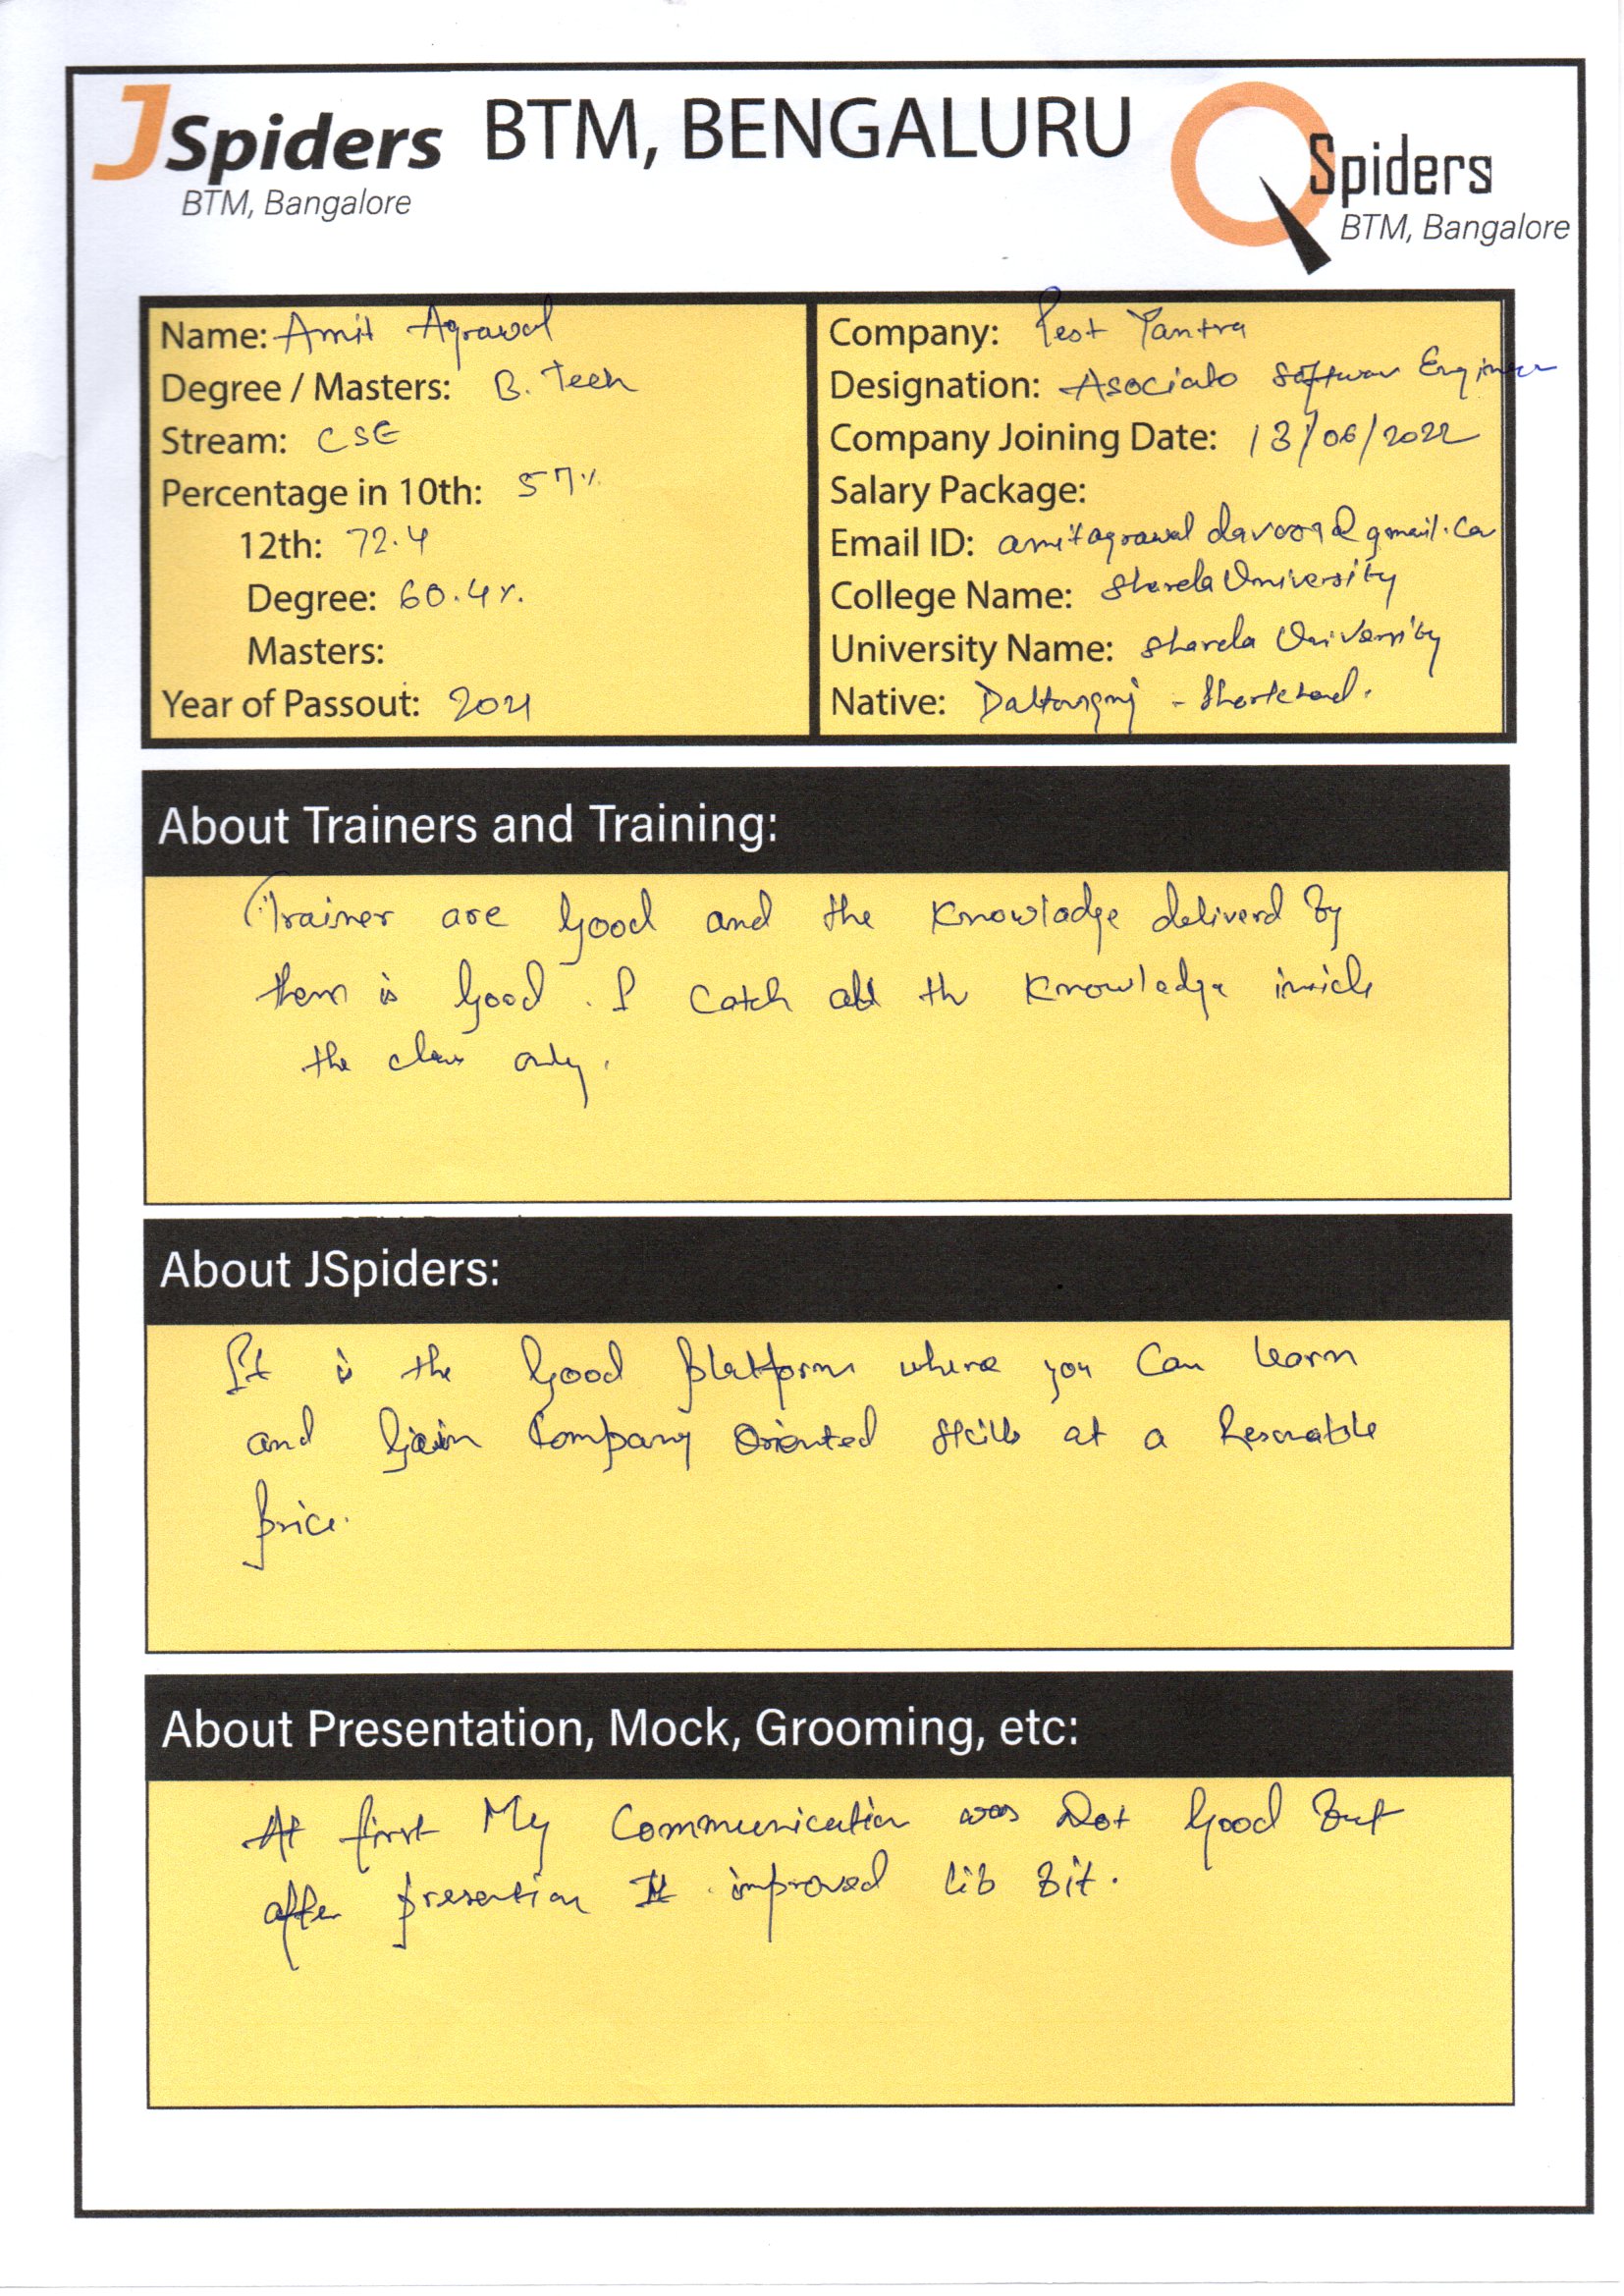 JSpiders
BTM, Bangalore
BTM, BENGALURU
QSpiders
BTM, Bangalore
Name: Amit Agrawal
Degree / Masters: B. Tech
Stream: CSE
Percentage in 10th: 57%
12th: 72.4
Degree: 60.4%.
Masters:
Year of Passout: 2021
Company: Test Yantra
Designation: Asociate Software Engineer
Company Joining Date: 13/06/2022
Salary Package:
Email ID:
College Name: Sharda University
University Name: Sharda University
Native: Daltonganj - Jharkhand.
About Trainers and Training:
Trainer are Good and the Knowladge deliverd By
them is Good. I Catch all the Knowledge inside
the class only.
About JSpiders:
It is the Good Platform where you Can learn
and Gain Company Oriented Skills at a Resonable
price.
About Presentation, Mock, Grooming, etc:
At first My Communication was Not Good But
after presention It improved lib Bit.